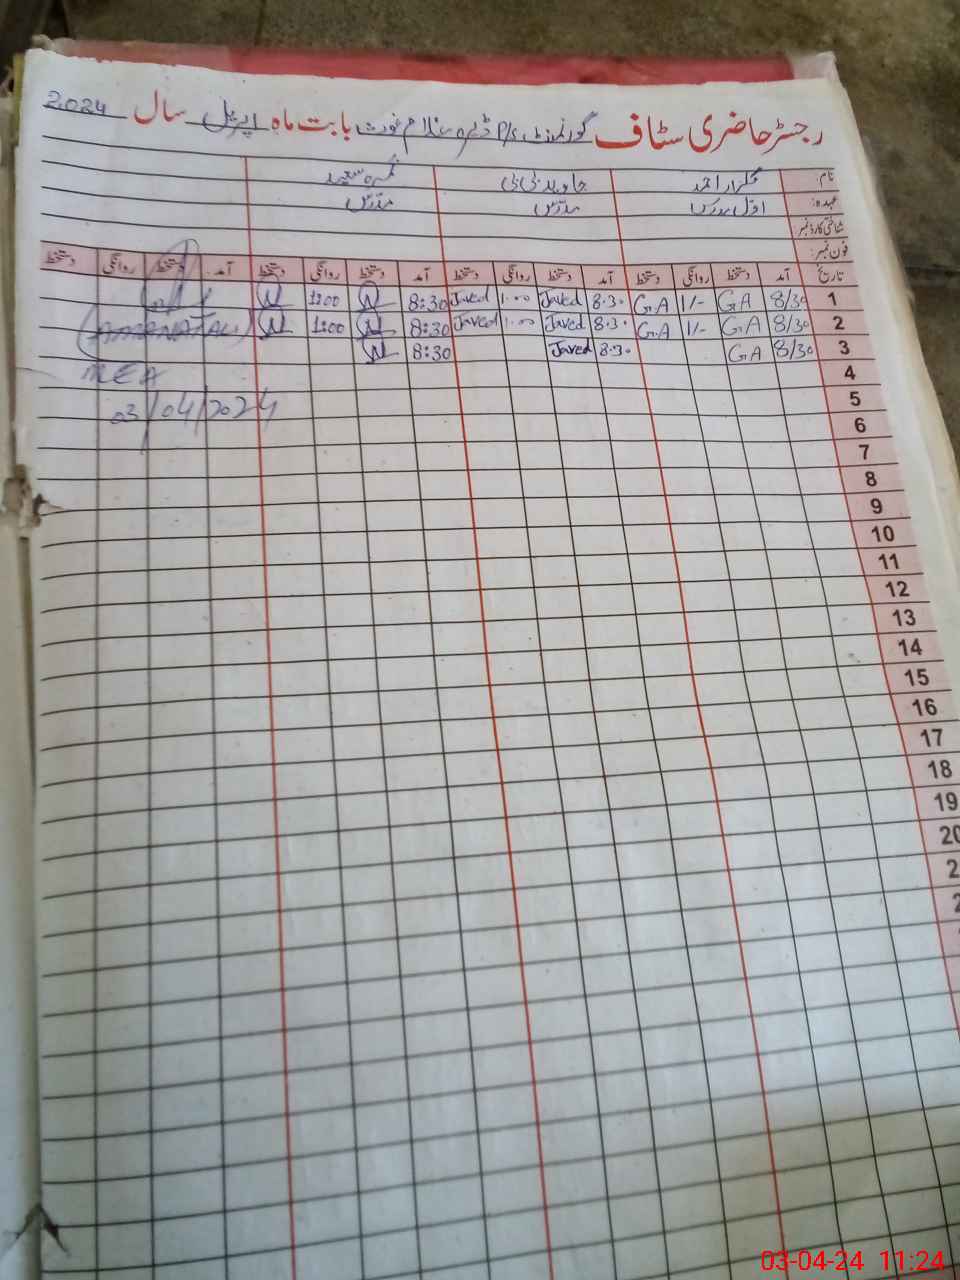 رجسٹر حاضری سٹاف گورنمنٹ P/S ڈیرہ غلام غوث بابت ماہ اپریل سال 2024
نام: گلزار احمد جاوید بی بی نمرہ سعید
عہدہ: اول مدرس مدرس مدرس
شناختی کارڈ نمبر
فون نمبر:
تاریخ آمد دستخط روانگی دستخط آمد دستخط روانگی دستخط آمد دستخط روانگی دستخط آمد دستخط روانگی دستخط
1 8/30 GA 1/- G.A 8.30 Javed 1.00 Javed 8:30 N 1:00 N
2 8/30 GA 1/- G.A 8.30 Javed 1.00 Javed 8:30 N 1:00 N
3 8/30 GA 8.30 Javed 8:30 N
4 MEA
5 03/04/2024
6
7
8
9
10
11
12
13
14
15
16
17
18
19
20
2
2
03-04-24 11:24